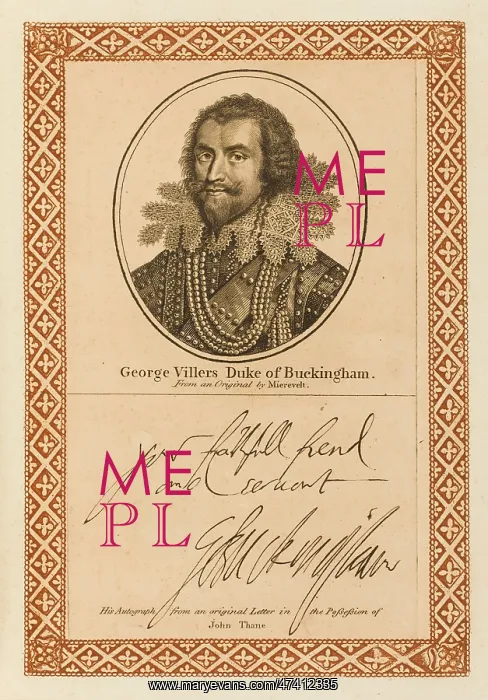 ME
PL
George Villers Duke of Buckingham.
From an Original by Mierevelt.
your faithfull frend
and Servant
ME
PL
G Buckingham
His Autograph, from an original Letter in the Poſseſsion of
John Thane
www.maryevans.com/47412335